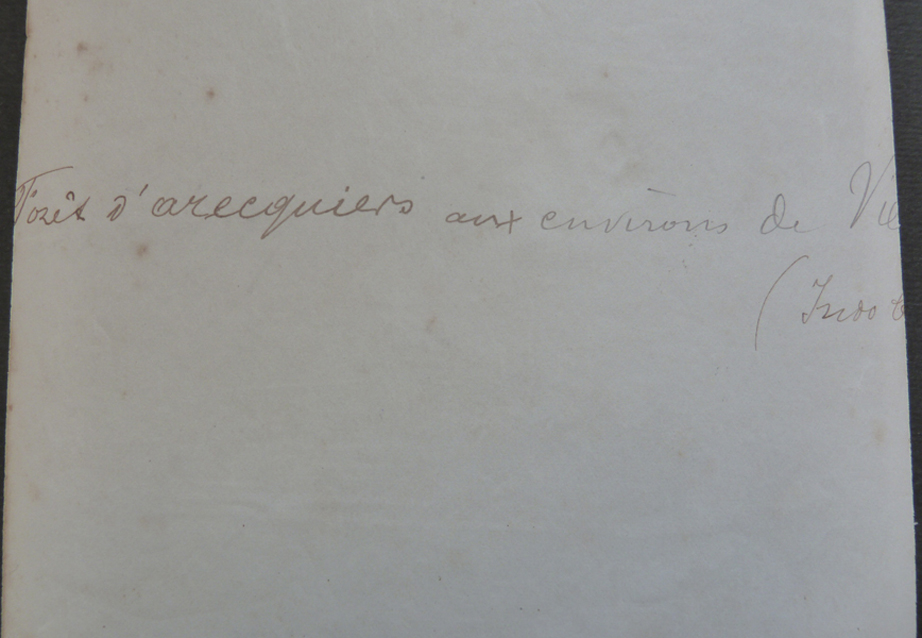 Forêt d'arecquiers aux environs de Vi
(Indo